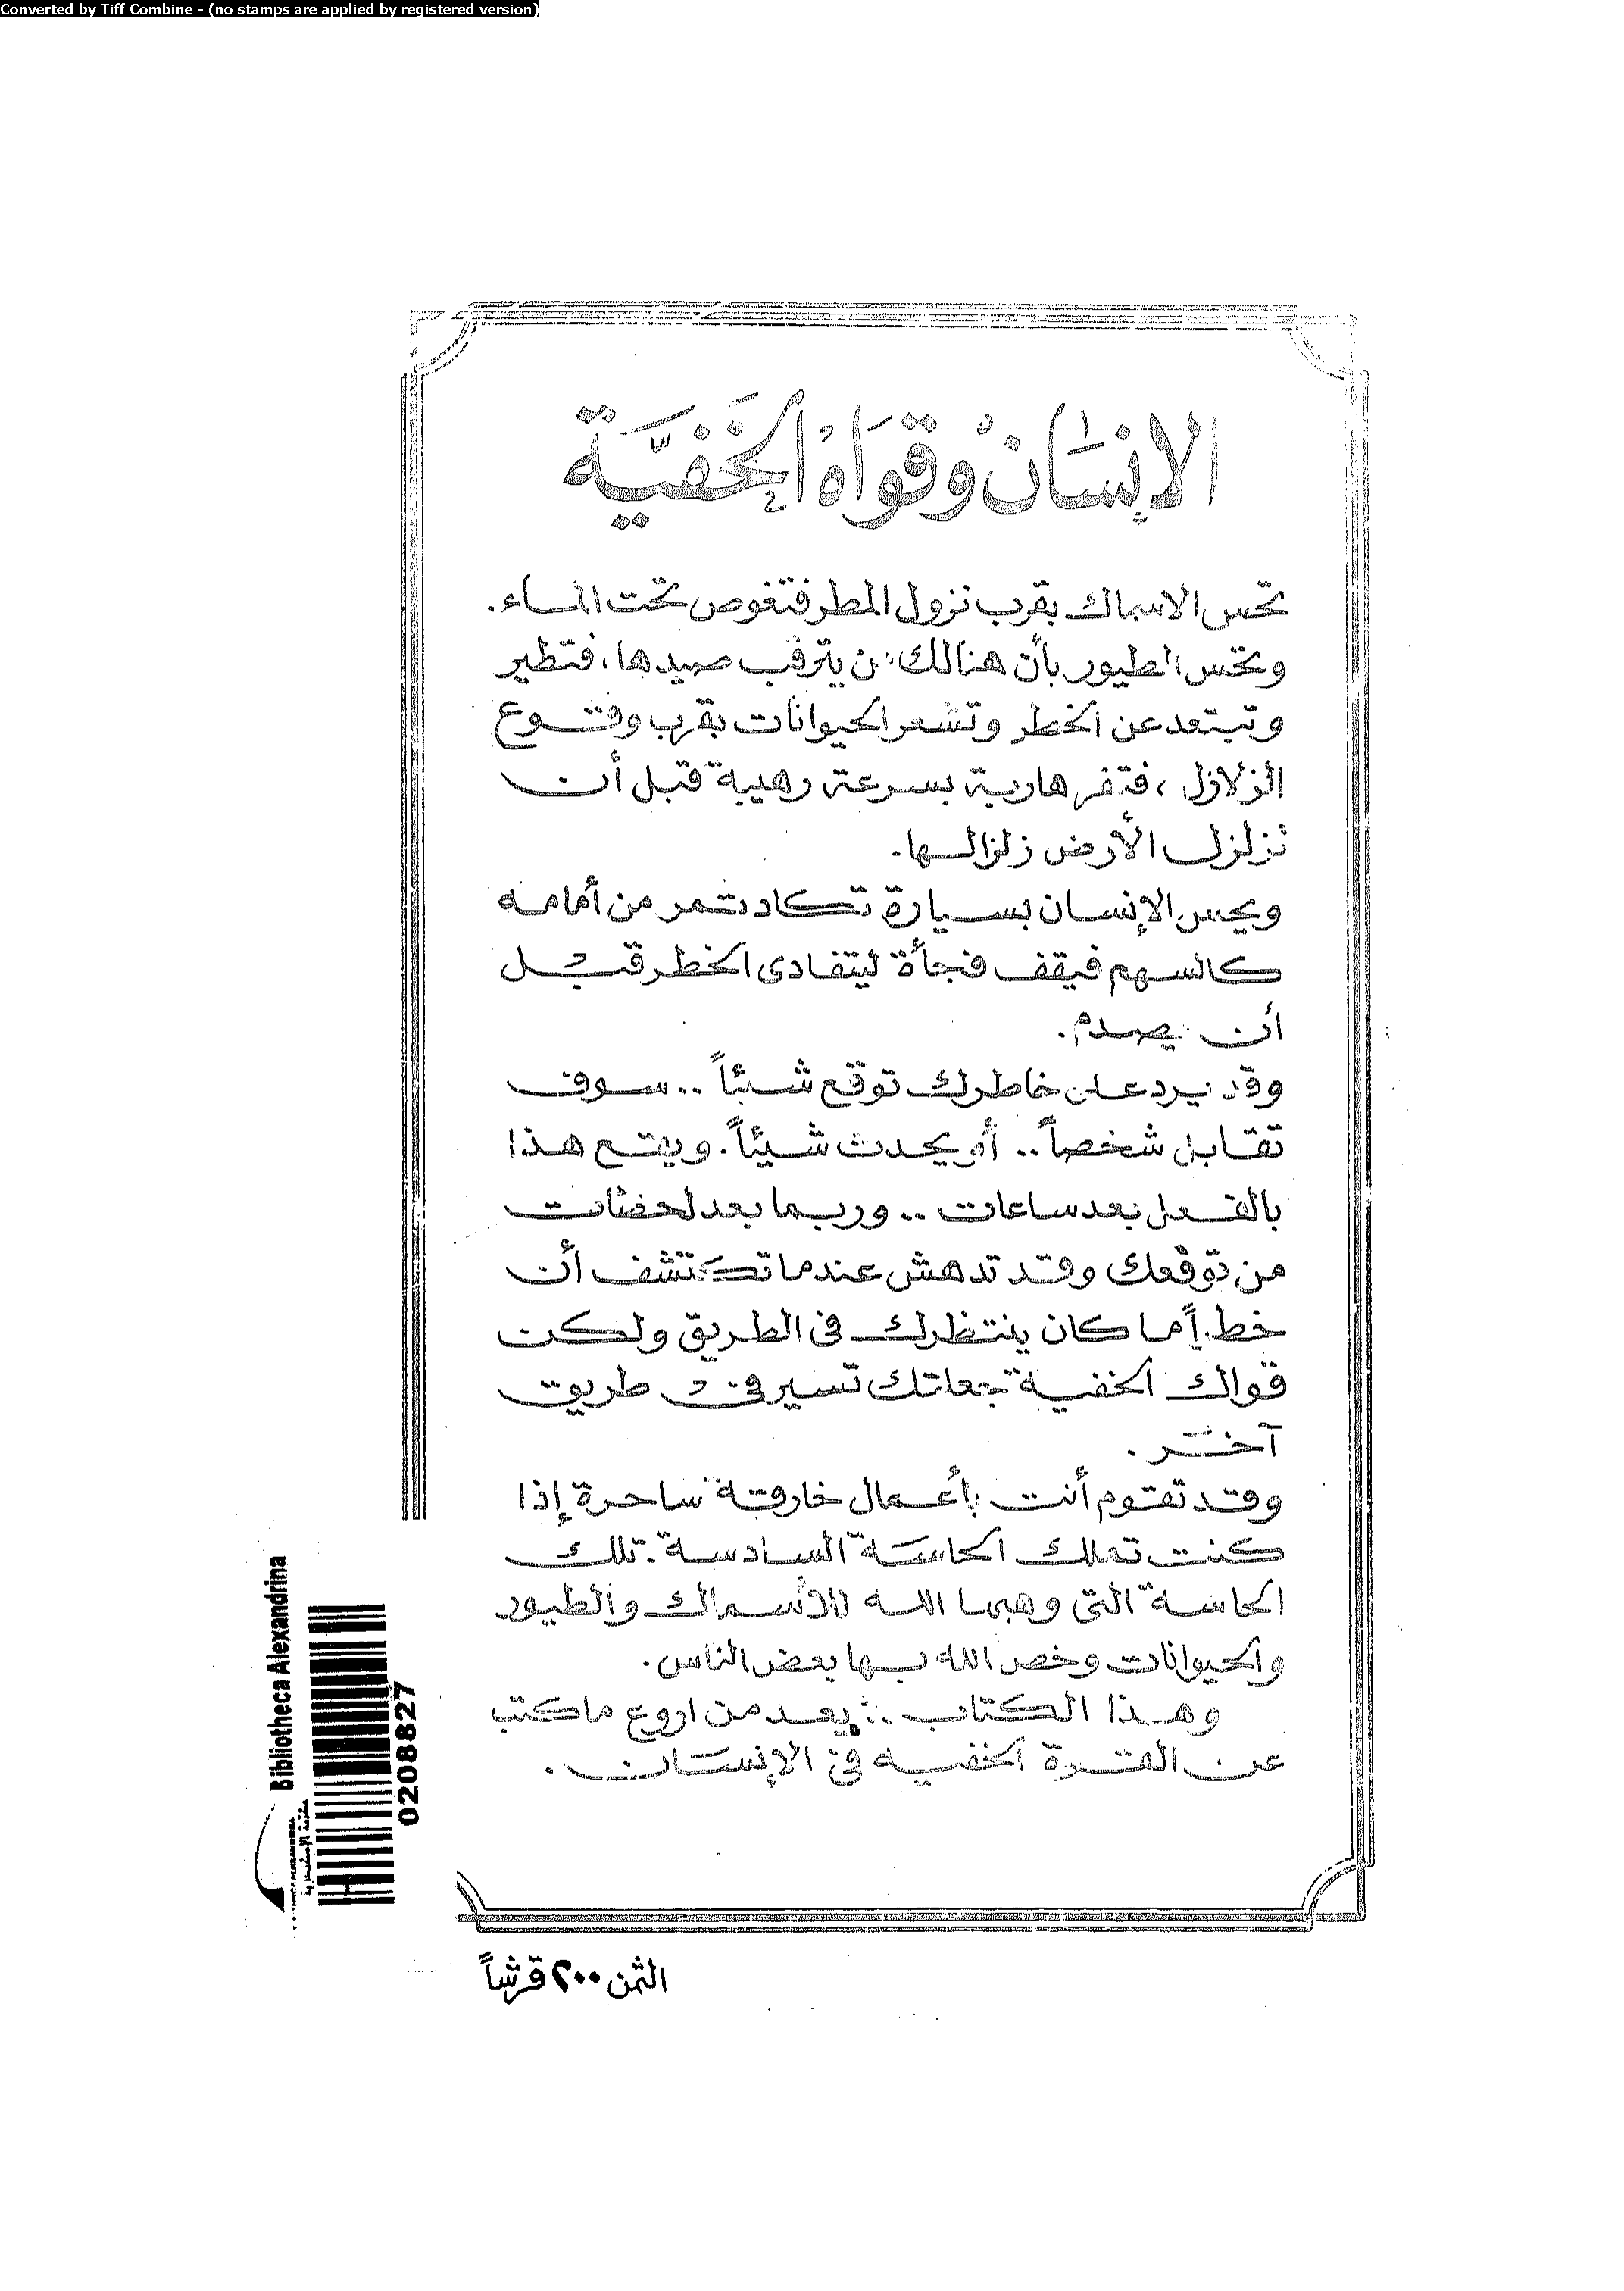 Converted by Tiff Combine - (no stamps are applied by registered version)
الإنسَانُ وقوَاهُ الخَفيَّة
تحس الاسماك بقرب نزول المطر فتغوص تحت الماء.
وتحس الطيور بأن هنالك من يترقب صيدها، فتطير
وتبتعد عن الخطر وتشعر الحيوانات بقرب وقوع
الزلازل، فتفر هاربة بسرعة رهيبة قبل أن
تزلزل الأرض زلزالها.
ويحس الإنسان بسيارة تكاد تمر من أمامه
كالسهم فيقف فجأة ليتفادى الخطر قبل
أن يصدم.
وقد يرد على خاطرك توقع شيئاً .. سوف
تقابل شخصاً .. أو يحدث شيئاً. ويقع هذا
بالفعل بعد ساعات .. وربما بعد لحظات
من توقعك وقد تدهش عندما تكتشف أن
خطراً ما كان ينتظرك فى الطريق ولكن
قواك الخفية جعلتك تسير فى طريق
آخر.
وقد تقوم أنت بأعمال خارقة ساحرة إذا
كنت تملك الحاسة السادسة. تلك
الحاسة التى وهبها الله للأسماك والطيور
والحيوانات وخص الله بها بعض الناس.
وهذا الكتاب .. يعد من اروع ما كتب
عن القدرة الخفيه فى الإنسَان.
Bibliotheca Alexandrina
مكتبة الإسكندرية
0208827
الثمن ٢٠٠ قرشاً